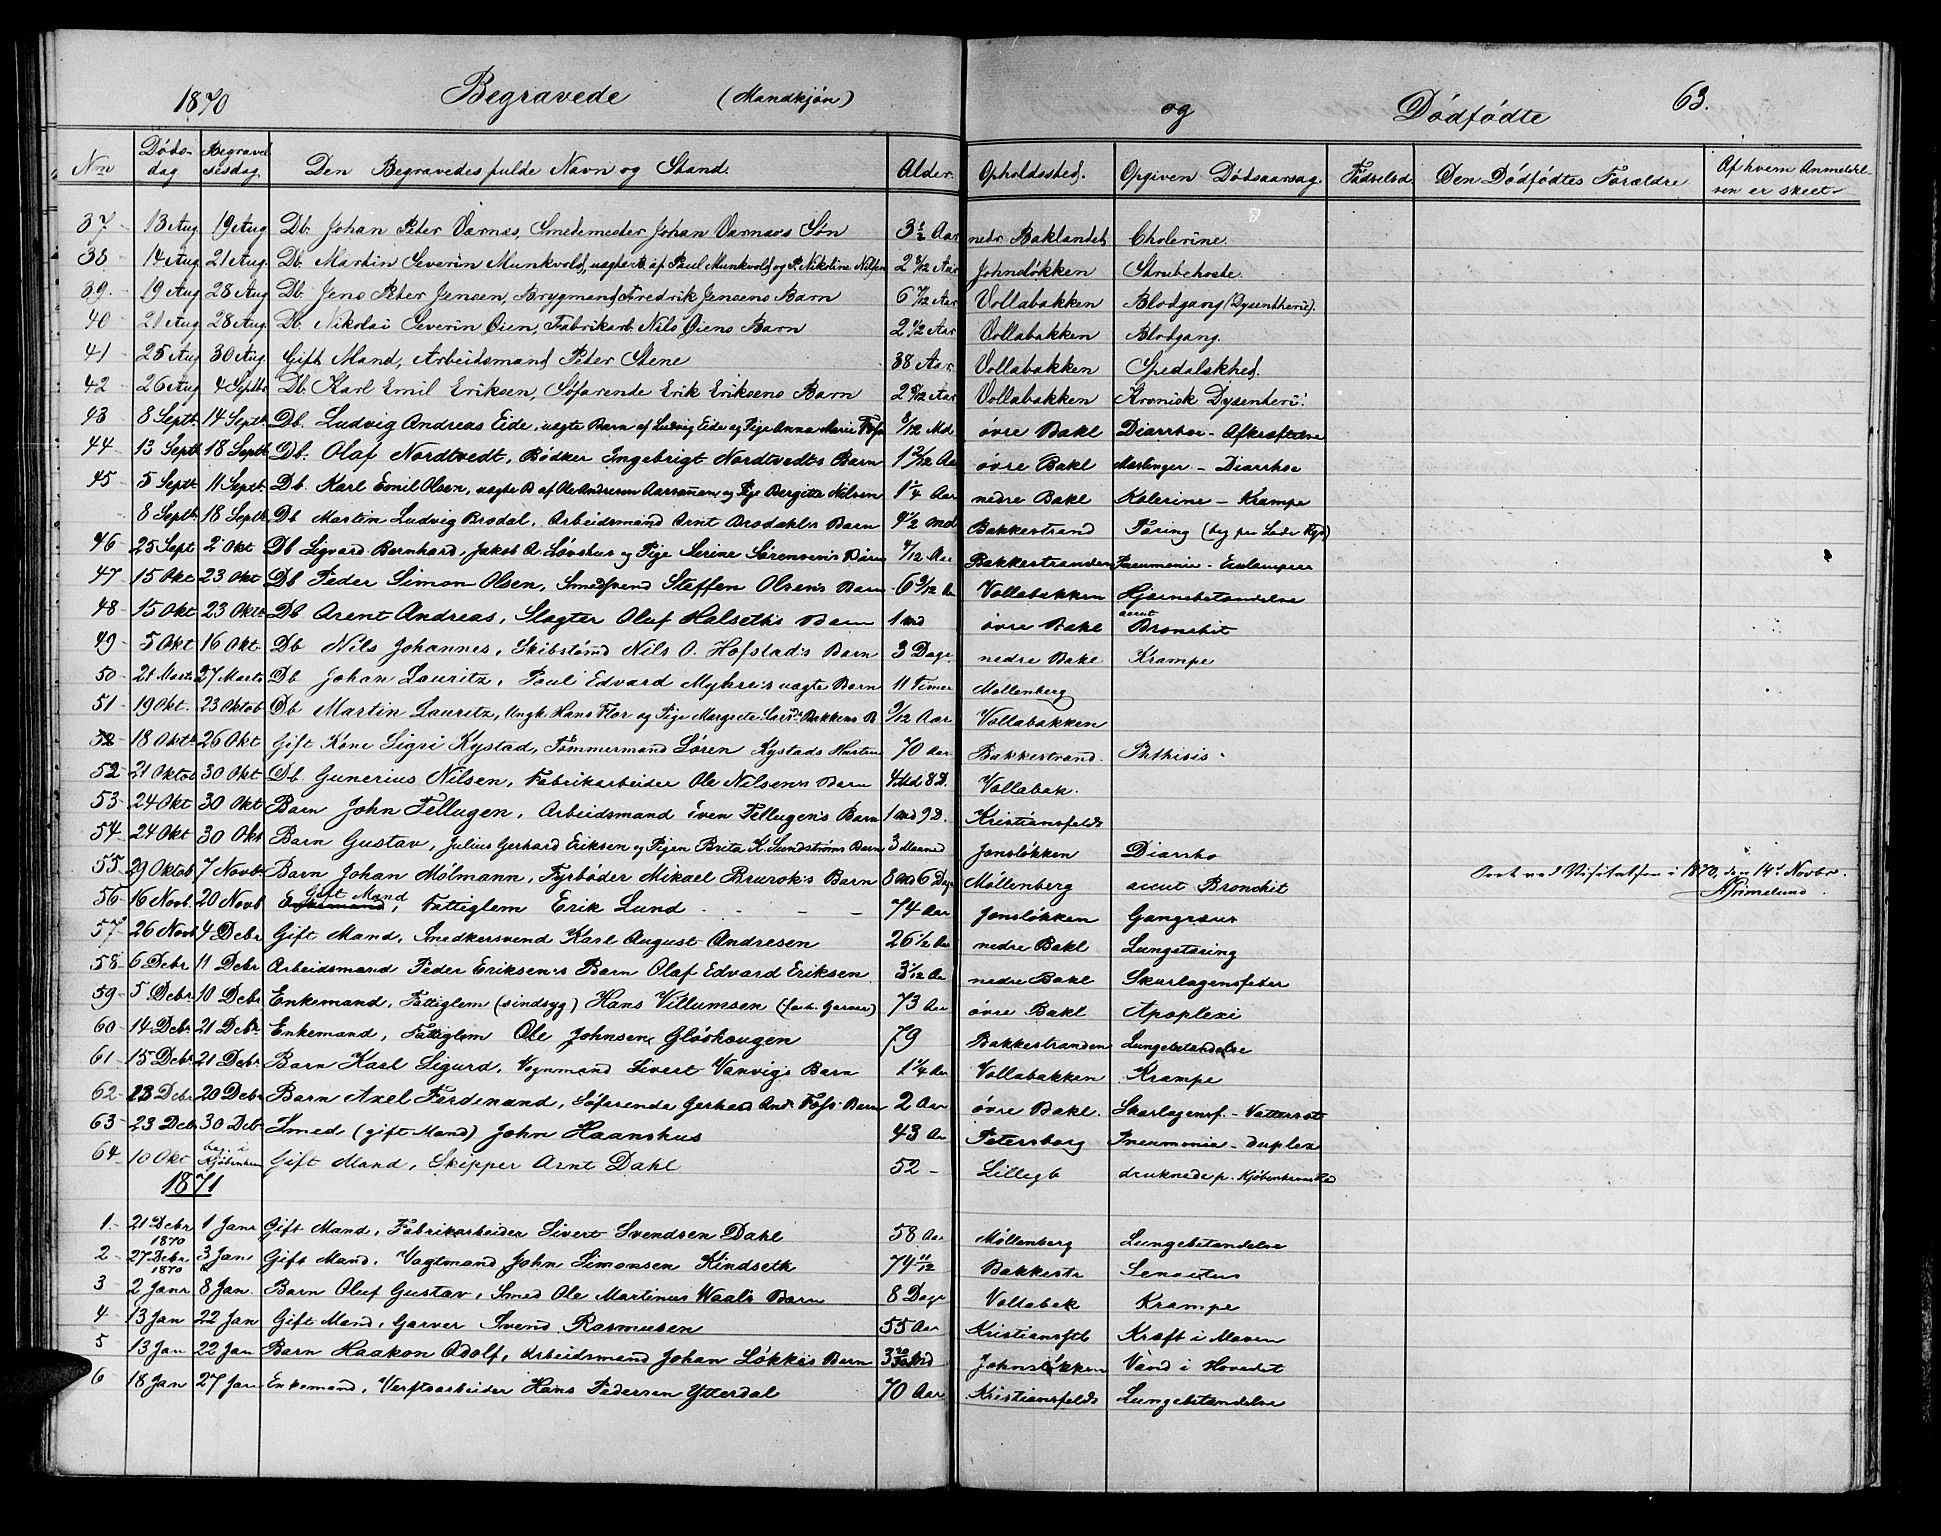 1870 Begravede (Mandkjøn) og Dødfødte 63.
Nrn Dødsdag Begravelsesdag Den Begravedes fulde Navn og Stand. Alder. Opholdssted. Opgiven Dødsaarsag. Fødselsd. Den Dødfødtes Forældre Af hvem Anmeldelsen er skeet
37 13 Aug 19 Aug Db. Johan Peter Varnes, Smedemester Johan Varnæs Søn 3 1/2 Aar nedr. Baklandet Cholerine.
38 14 Aug 21 Aug. Db. Martin Severin Munkvold, uægte B. af Paul Munkvold og P. Nikoline Nilsen 2 8/12 Aar Johnsløkken Strubehoste.
39. 19 Aug 28 Aug Db. Jens Peter Jensen, Brygmand Fredrik Jensens Barn 6 7/12 Aar Vollabakken Blodgang (Dysentheri).
40 21 Aug 28 Aug. Db. Nikolai Severin Øien, Fabrikarb. Nils Øiens Barn 2 1/2 Aar Vollabakken Blodgang.
41 25 Aug 30 Aug. Gift Mand, Arbeidsmand Peter Stene 38 Aar. Vollabakken Spedalskhed.
42 26 Aug 4 Septbr Db. Karl Emil Eriksen, Søfarende Erik Eriksens Barn 2 5/12 Aar Vollabakken Kronisk Dysenteri.
43 8 Septb. 14 Septb. Db. Ludvig Andreas Eide, uægte Barn af Ludvig Eide og Pige Anna Marie Foss 8/12 Md øvre Bakl Diarrhoe - Afkræftelse
44 13 Septb 18 Septb. Db. Olaf Nordtvedt, Bødker Ingebrigt Nordtvedts Barn 1 2/12 Aa øvre Bakl Meslinger - Diarrhoe
45 5 Septb. 11 Septb. Db. Karl Emil Olsen, uægte B af Ole Andersen og Pige Bergitte Nilsen 1 1/4 Aar nedre Bakl Kolerine - Krampe
8 Septb. 18 Septb. Db Martin Ludvig Brodal, Arbeidsmand Arnt Brodahl's Barn 4 1/2 Md Bakkestrand Tæring (beg paa Lade Kgd)
46 25 Sept 2 Okt Db Sigvard Bernhard, Jakob A. Løvshus og Pige Serine Sørensen's Barn 4/12 Aar Bakkestranden Pneumonia - Eclampsia
47 15 Okt. 23 Okt Db Peder Simon Olsen, Smedsvend Steffen Olsen's Barn 6 9/12 Aa Vollabakken Hjernebetændelse
48 15 Okt 23 Oktb. Db Arent Andreas, Slagter Oluf Halseth's Barn 1 Md øvre Bakl acut Bronchit
49 5 Okt 16 Okt. Db Nils Johannes, Skibstømd Nils O. Hofstad's Barn 3 Dage nedre Bakl Krampe
50 21 Marts 27 Marts Db Johan Lauritz, Paul Edvard Myhre's uægte Barn 11 Timer Møllenberg
51 19 Okt. 23 Oktob Db Martin Lauritz, Ungk Hans Flor og Pige Margrete Larsd. Bakkens B 9/12 Aar Vollabakken
52 18 Oktb 26 Okt Gift Kone Sigri Kystad, Tømmermand Søren Kystads Hustru 70 Aar Bakkestrand. Phthisis
52 21 Oktob 30 Okt Db. Gunerius Nilsen, Fabrikarbeider Ole Nilsen's Barn 4 Md 8 D. Vollabak.
53 24 Okt 30 Okt Barn John Fellugen, Arbeidsmand Even Fellugen's Barn 1 Md 9 D. Kristiansfelds
54 24 Okt 30 Okt Barn Gustav, Julius Gerhard Eriksen og Pigen Berita K. Sundstrøms Barn 3 Maaned Jonsløkken Diarrho
55 29 Oktob 7 Novb Barn Johan Mølmann, Fyrbøder Mikael Brurok's Barn 8 Md 6 Dage Møllenberg acut Bronchit
Seet ved Visitatsen i 1870, den 14de Novbr.
A. Grimelund
56 16 Novb. 20 Novb Gift Mand Enkemand, Fattiglem Erik Lund 74 Aar Jonsløkken Gangræna
57 26 Novb 4 Debr Gift Mand, Snedkersvend Karl August Andresen 26 1/2 Aa nedre Bakl Lungetæring
58 6 Debr 11 Debr Arbeidsmand Peder Eriksen's Barn Olaf Edvard Eriksen 3 1/12 Aa nedre Bakl Skarlagensfeber
59 5 Debr 10 Debr Enkemand, Fattiglem (sindsyg) Hans Villumsen (forh. Garver) 73 Aar øvre Bakl Apoplexi
60 14 Debr 21 Debr Enkemand, Fattiglem Ole Johnsen Gløshougen 79 Bakkestranden Lungebetændelse
61 15 Debr. 21 Debr. Barn Karl Sigurd, Vognmand Sivert Vanvig's Barn 1 1/4 Aar Vollabakken Krampe
62 13 Debr 20 Debr Barn Axel Ferdinand, Søfarende Gerhard Andr Foss Barn 2 Aar øvre Bakl. Skarlagensf. - Vattersot
63 23 Debr 30 Debr Smed (gift Mand) John Haanshus 43 Aar Petersborg Pneumonia - duplex
64 10 Okt beg i Kjøbenhavn Gift Mand, Skipper Arnt Dahl 52 - Lillegb druknede p. Kjøbenhavns Red
1871
1. 21 Debr 1870 1 Janr Gift Mand, Fabrikarbeider Sivert Svendsen Dahl 58 Aar Møllenberg Lungebetændelse
2 27 Debr 1870 3 Jan Gift Mand, Vagtmand John Simonsen Kindseth 74 11/12 Bakkestr Senectus
3 2 Janr 8 Jan. Barn Oluf Gustav, Smed Ole Martinus Waal's Barn 8 Dage Vollabak Krampe
4 13 Jan 22 Jan Gift Mand, Garver Svend Rasmusen 55 Aar Kristiansfelb Kræft i Maven
5 13 Jan 22 Jan Barn Haakon Adolf, Arbeidsmand Johan Løkkes Barn Johnsløkken Vand i Hovedet
6 18 Jan 27 Jan Enkemand, Verftsarbeider Hans Pedersen Ytterdal 70 Aar Kristiansfelds Lungebetændelse